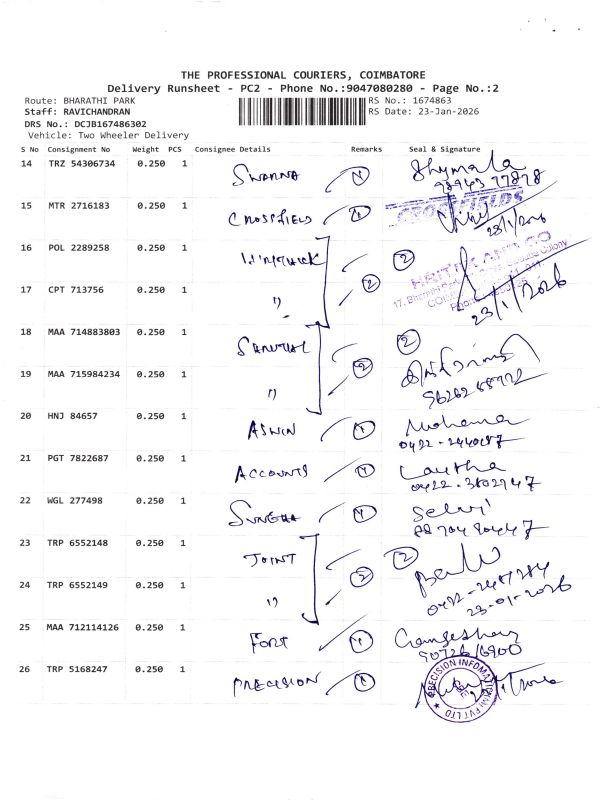 THE PROFESSIONAL COURIERS, COIMBATORE
Delivery Runsheet - PC2 - Phone No.:9047080280 - Page No.:2
Route: BHARATHI PARK RS No.: 1674863
Staff: RAVICHANDRAN RS Date: 23-Jan-2026
DRS No.: DCJB167486302
Vehicle: Two Wheeler Delivery
S No Consignment No Weight PCS Consignee Details Remarks Seal & Signature
14 TRZ 54306734 0.250 1 SWARNA 1 Shymala
98943 77878
15 MTR 2716183 0.250 1 CROSSFIELD 1 CROSSFIELDS
23/1/2026
16 POL 2289258 0.250 1 2
17 CPT 713756 0.250 1 " 2
23/1/2026
18 MAA 714883803 0.250 1 2
19 MAA 715984234 0.250 1 " 2
20 HNJ 84657 0.250 1 ASWIN 1 Mohana
21 PGT 7822687 0.250 1 ACCOUNTS 1 Lautha
0422-3502747
22 WGL 277498 0.250 1 1 Selvi
23 TRP 6552148 0.250 1 JOINT 2
24 TRP 6552149 0.250 1 " 2
23-01-2026
25 MAA 712114126 0.250 1 FORT 1
90726 16900
26 TRP 5168247 0.250 1 PRECISION 1 PRECISION INFOMATIC (M) PVT LTD